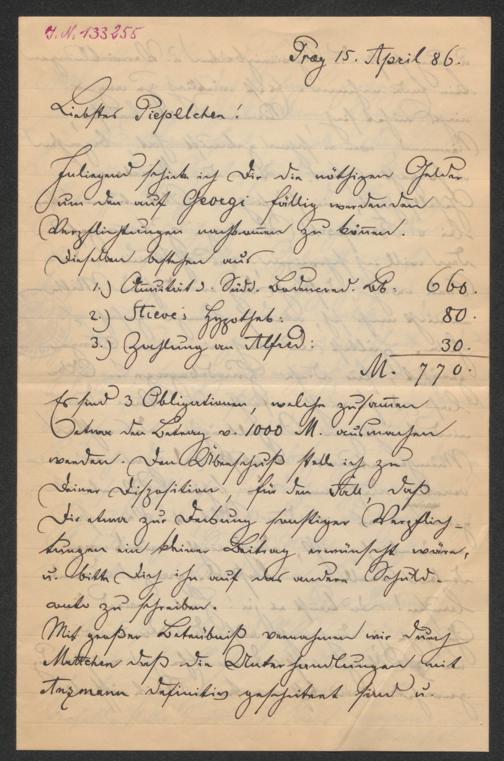 J. N. 133255
Prag 15. April 86.
Liebstes Piepeltchen!
Inliegend schicke ich Dir die nöthigen Gelder
um den auf Georgi fällig werdenden
Verpflichtungen nachkommen zu können.
Dieselben bestehen aus
1.) Annuität d. Südd. Bodencred. Bk: 660.
2.) Steve's Hypothek: 80.
3.) Zahlung an Alfred: 30.
M. 770.
Es sind 3 Obligationen, welche zusammen
etwa den Betrag v. 1000 M. ausmachen
werden. Den Überschuß stelle ich zu
Deiner Disposition, für den Fall, daß
Dir etwa zur Deckung sonstiger Verpflich-
tungen ein kleiner Beitrag erwünscht wäre,
u. bitte Dich ihn auf das andere Schuld-
conto zu schreiben.
Mit großer Betrübniß vernahmen wir durch
daß die Unterhandlungen mit
definitiv gescheitert sind u.